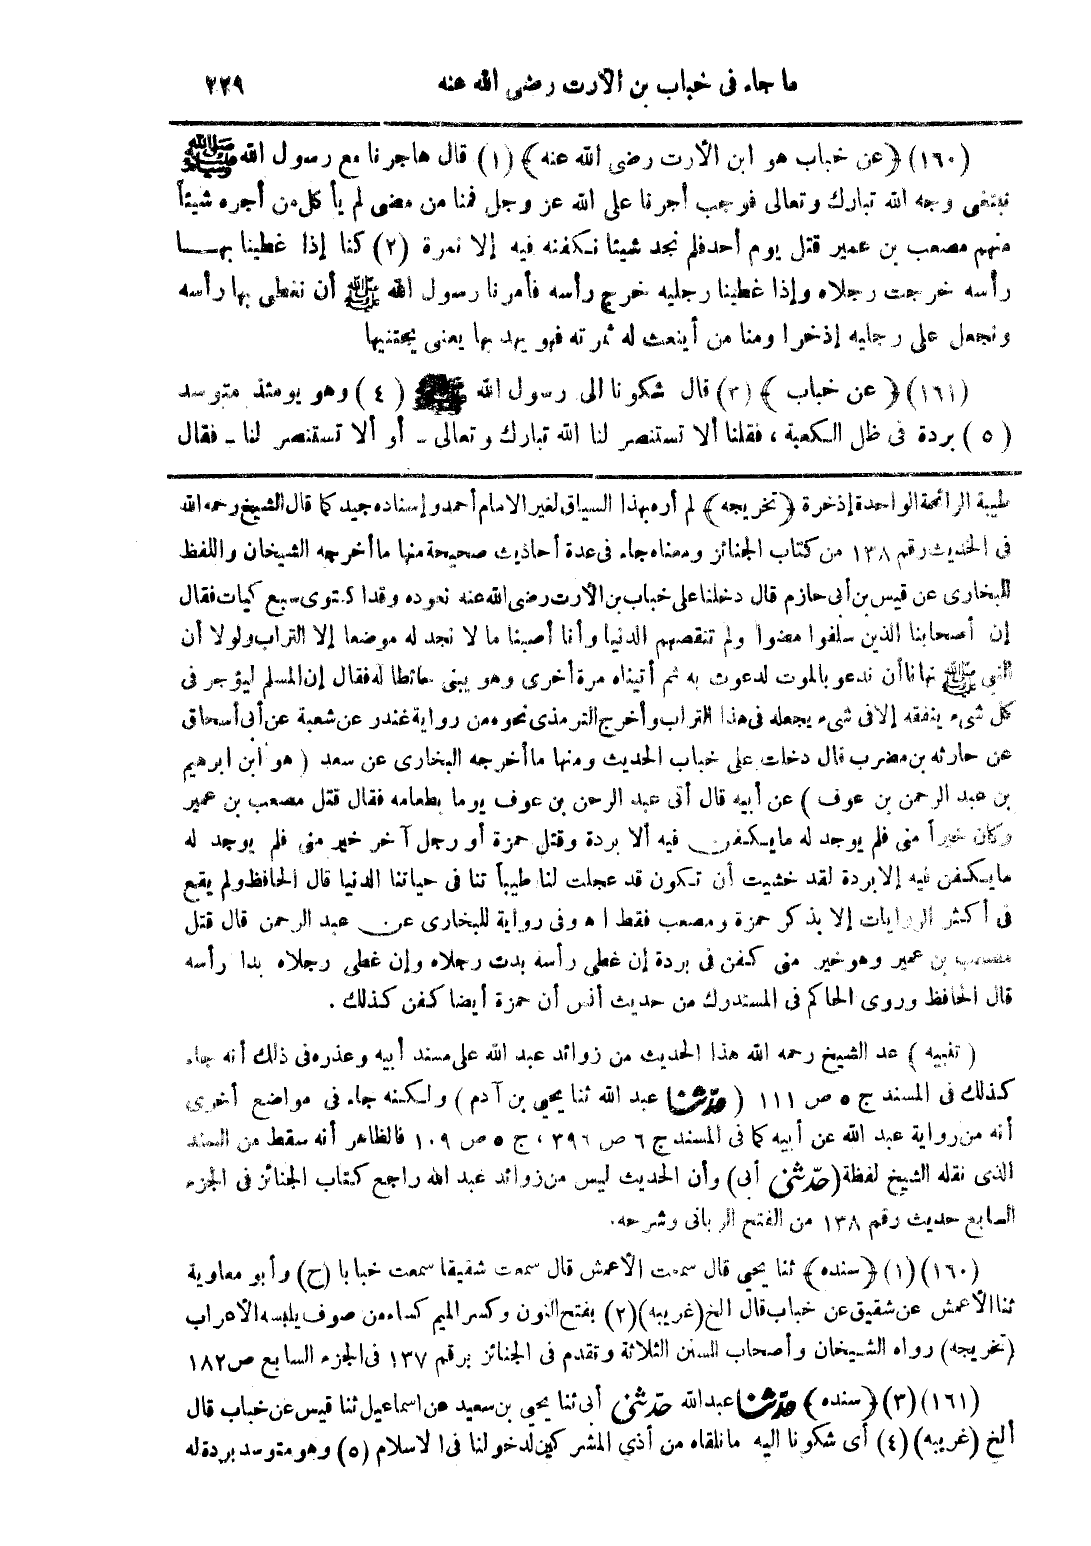 ما جاء فى خباب بن الأرت رضى الله عنه ٢٢٩
(١٦٠) ﴿عن خباب هو ابن الأرت رضى الله عنه﴾ (١) قال هاجرنا مع رسول الله ﷺ
نبتغى وجه الله تبارك وتعالى فوجب أجرنا على الله عز وجل فمنا من مضى لم يأكل من أجره شيئاً
منهم مصعب بن عمير قتل يوم أحد فلم نجد شيئا نكفنه فيه إلا نمرة (٢) كنا إذا غطينا بهـــا
رأسه خرجت رجلاه وإذا غطينا رجليه خرج رأسه فأمرنا رسول الله ﷺ أن نغطى بها رأسه
ونجعل على رجليه إذخرا ومنا من أينعت له ثمرته فهو يهدبها يعنى يجتنيها
(١٦١) ﴿عن خباب﴾ (٣) قال شكونا الى رسول الله ﷺ (٤) وهو يومئذ متوسد
(٥) بردة فى ظل الكعبة ، فقلنا ألا تستنصر لنا الله تبارك وتعالى ـ أو ألا تستنصر لنا ـ فقال
طيبة الرائحة الواحدة إذخرة ﴿تخريجه﴾ لم أره بهذا السياق لغير الامام أحمد وإسناده جيد كما قال الشيخ رحمه الله
فى الحديث رقم ١٣٨ من كتاب الجنائز ومعناه جاء فى عدة أحاديث صحيحة منها ما أخرجه الشيخان واللفظ
للبخارى عن قيس بن أبى حازم قال دخلنا على خباب بن الأرت رضى الله عنه نعوده وقد اكتوى سبع كيات فقال
إن أصحابنا الذين سلفوا مضوا ولم تنقصهم الدنيا وأنا أصبنا ما لا نجد له موضعا إلا التراب ولولا أن
النبى ﷺ نهانا أن ندعو بالموت لدعوت به ثم أتيناه مرة أخرى وهو يبنى حائطا له فقال إن المسلم ليؤجر فى
كل شىء ينفقه إلا فى شىء يجعله فى هذا التراب وأخرج الترمذى نحوه من رواية غندر عن شعبة عن أبى أسحاق
عن حارثه بن مضرب قال دخلت على خباب الحديث ومنها ما أخرجه البخارى عن سعد ( هو ابن ابرهيم
بن عبد الرحمن بن عوف ) عن أبيه قال أتى عبد الرحمن بن عوف يوما بطعامه فقال قتل مصعب بن عمير
وكان خيراً منى فلم يوجد له ما يكفن فيه ألا بردة وقتل حمزة أو رجل آخر خير منى فلم يوجد له
ما يكفن فيه إلا بردة لقد خشيت أن تكون قد عجلت لنا طيباً تنا فى حياتنا الدنيا قال الحافظ ولم يقع
فى أكثر الروايات إلا بذكر حمزة ومصعب فقط ا ه وفى رواية للبخارى عن عبد الرحمن قال قتل
مصعب بن عمير وهو خير منى كفن فى بردة إن غطى رأسه بدت رجلاه وإن غطى رجلاه بدا رأسه
قال الحافظ وروى الحاكم فى المستدرك من حديث أنس أن حمزة أيضا كفن كذلك .
( تنبيه ) عد الشيخ رحمه الله هذا الحديث من زوائد عبد الله على مسند أبيه وعذره فى ذلك أنه جاء
كذلك فى المسند ج ٥ ص ١١١ ( حدّثنا عبد الله ثنا يحي بن آدم ) ولكنه جاء فى مواضع أخرى
أنه من رواية عبد الله عن أبيه كما فى المسند ج ٦ ص ٣٩٦ ، ج ٥ ص ١٠٩ فالظاهر أنه سقط من السند
الذى نقله الشيخ لفظة (حدّثنى أبى) وأن الحديث ليس من زوائد عبد الله راجع كتاب الجنائز فى الجزء
السابع حديث رقم ١٣٨ من الفتح الربانى وشرحه.
(١٦٠) (١) ﴿سنده﴾ ثنا يحي قال سمعت الأعمش قال سمعت شقيقا سمعت خبابا (ح) وأبو معاوية
ثنا الأعمش عن شقيق عن خباب قال الخ (غريبه) (٢) بفتح النون وكسر الميم كساء من صوف يلبسه الأعراب
(تخريجه) رواه الشيخان وأصحاب السنن الثلاثة وتقدم فى الجنائز برقم ١٣٧ فى الجزء السابع ص ١٨٢
(١٦١) (٣) ﴿سنده﴾ حدّثنا عبد الله حدّثنى أبى ثنا يحي بن سعيد عن اسماعيل ثنا قيس عن خباب قال
ألخ (غريبه) (٤) أى شكونا اليه ما نلقاه من أذي المشركين لدخولنا فى الاسلام (٥) وهو متوسد بردة له